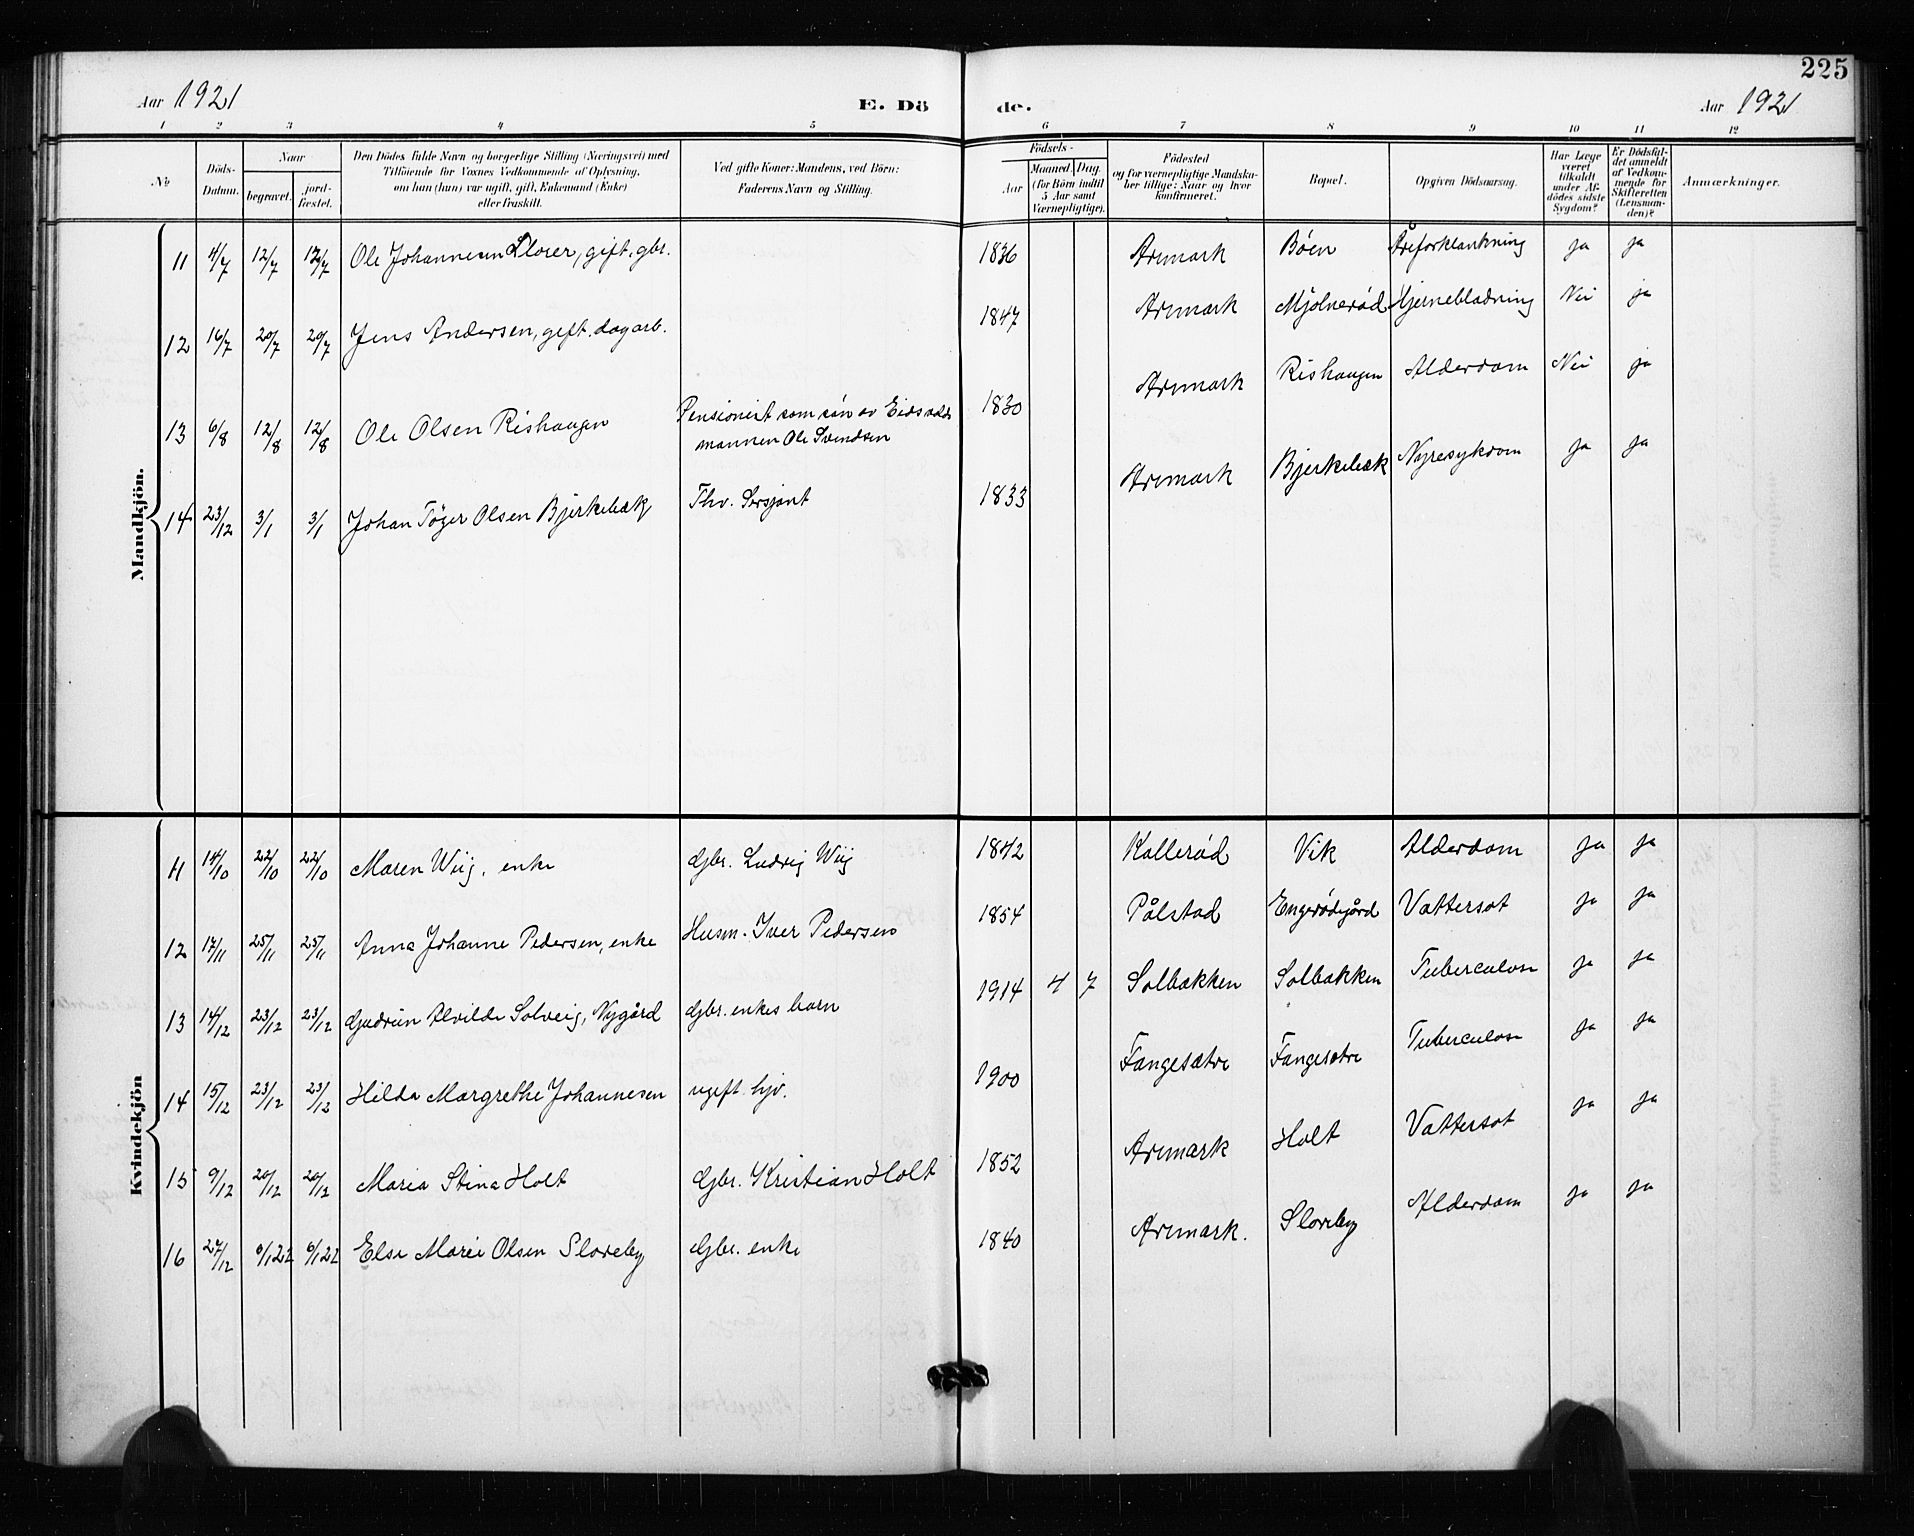 225
Aar 1921 E. Dö de. Aar 1921
1 2 3 4 5 6 7 8 9 10 11 12
No Döds-Datum. Naar begravet. jord-fæstet. Den Dödes fulde Navn og borgerlige Stilling (Næringsvei) med Tilföiende for Voxnes Vedkommende af Oplysning, om han (hun) var ugift, gift, Enkemand (Enke) eller fraskilt. Ved gifte Koner: Mandens, ved Börn: Faderens Navn og Stilling. Födsels- Aar Maaned. Dag. (for Börn indtil 5 Aar samt Værnepligtige). Födested og for værnepligtige Mandskaber tillige: Naar og hvor konfirmeret. Bopæl. Opgiven Dödsaarsag. Har Læge været tilkaldt under Afdödes sidste Sygdom? Er Dödsfaldet anmeldt af Vedkommende for Skifteretten (Lensmanden)? Anmærkninger.
Mandkjön.
11 4/7 12/7 12/7 Ole Johannesen Slorer, gift, gbr. 1836 Aremark Böen Åreforkalkning ja ja
12 16/7 20/7 20/7 Jens Andersen, gift, dagarb. 1847 Aremark Mjølnerød Hjerneblødning Nei ja
13 6/8 12/8 12/8 Ole Olsen Rishaugen Pensionist som søn av Eidsvolds mannen Ole Svendsen 1830 Aremark Rishaugen Alderdom Nei ja
14 23/12 3/1 3/1 Johan Töger Olsen Bjerkebæk Fhv. Sersjant 1833 Aremark Bjerkebæk Nyresykdom ja ja
Kvindekjön
11 14/10 22/10 22/10 Maren Wiig, enke Gbr. Ludvig Wiig 1842 Kallerød Vik Alderdom ja ja
12 17/11 25/11 25/11 Anna Johanne Pedersen, enke Husm. Iver Pedersen 1854 Pålstad Engerødegård Vattersot ja ja
13 14/12 23/12 23/12 Gudrun Alvilde Solveig, Nygård Gbr. enkes barn 1914 4 7 Solbakken Solbakken Tuberculose ja ja
14 15/12 23/12 23/12 Hilda Margrethe Johannesen ugift. hjv. 1900 Fangesætre Fangesætre Tuberculose ja ja
15 9/12 20/12 20/12 Maria Stina Holt Gbr. Kristian Holt 1852 Aremark Holt Vattersot ja ja
16 27/12 6/1 22 6/1 22 Else Marie Olsen Sloreby Gbr. enke 1840 Aremark. Sloreby Alderdom ja ja